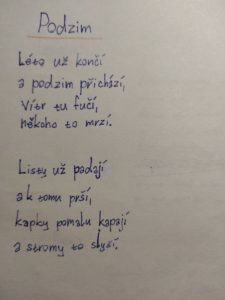 Podzim
Léto už končí
a podzim přichází,
Vítr tu fučí,
někoho to mrzí.
Listy už padají
a k tomu prší,
kapky pomalu kapají
a stromy to slyší.